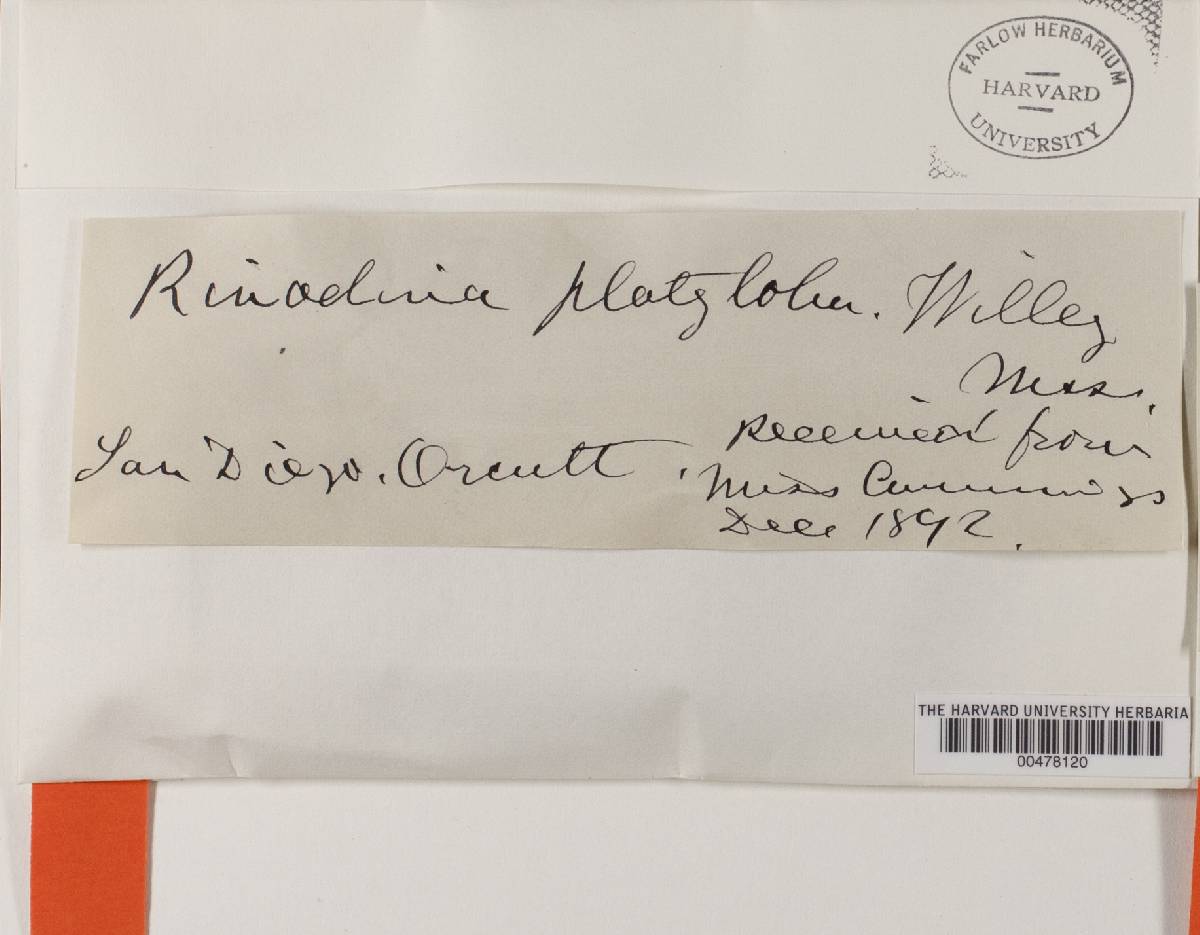 FARLOW HERBARIUM
HARVARD
UNIVERSITY
Rinodina platyloba. Willey
Mss.
San Diego. Orcutt.
Received from
Miss Cummings
Dec. 1892.
THE HARVARD UNIVERSITY HERBARIA
00478120